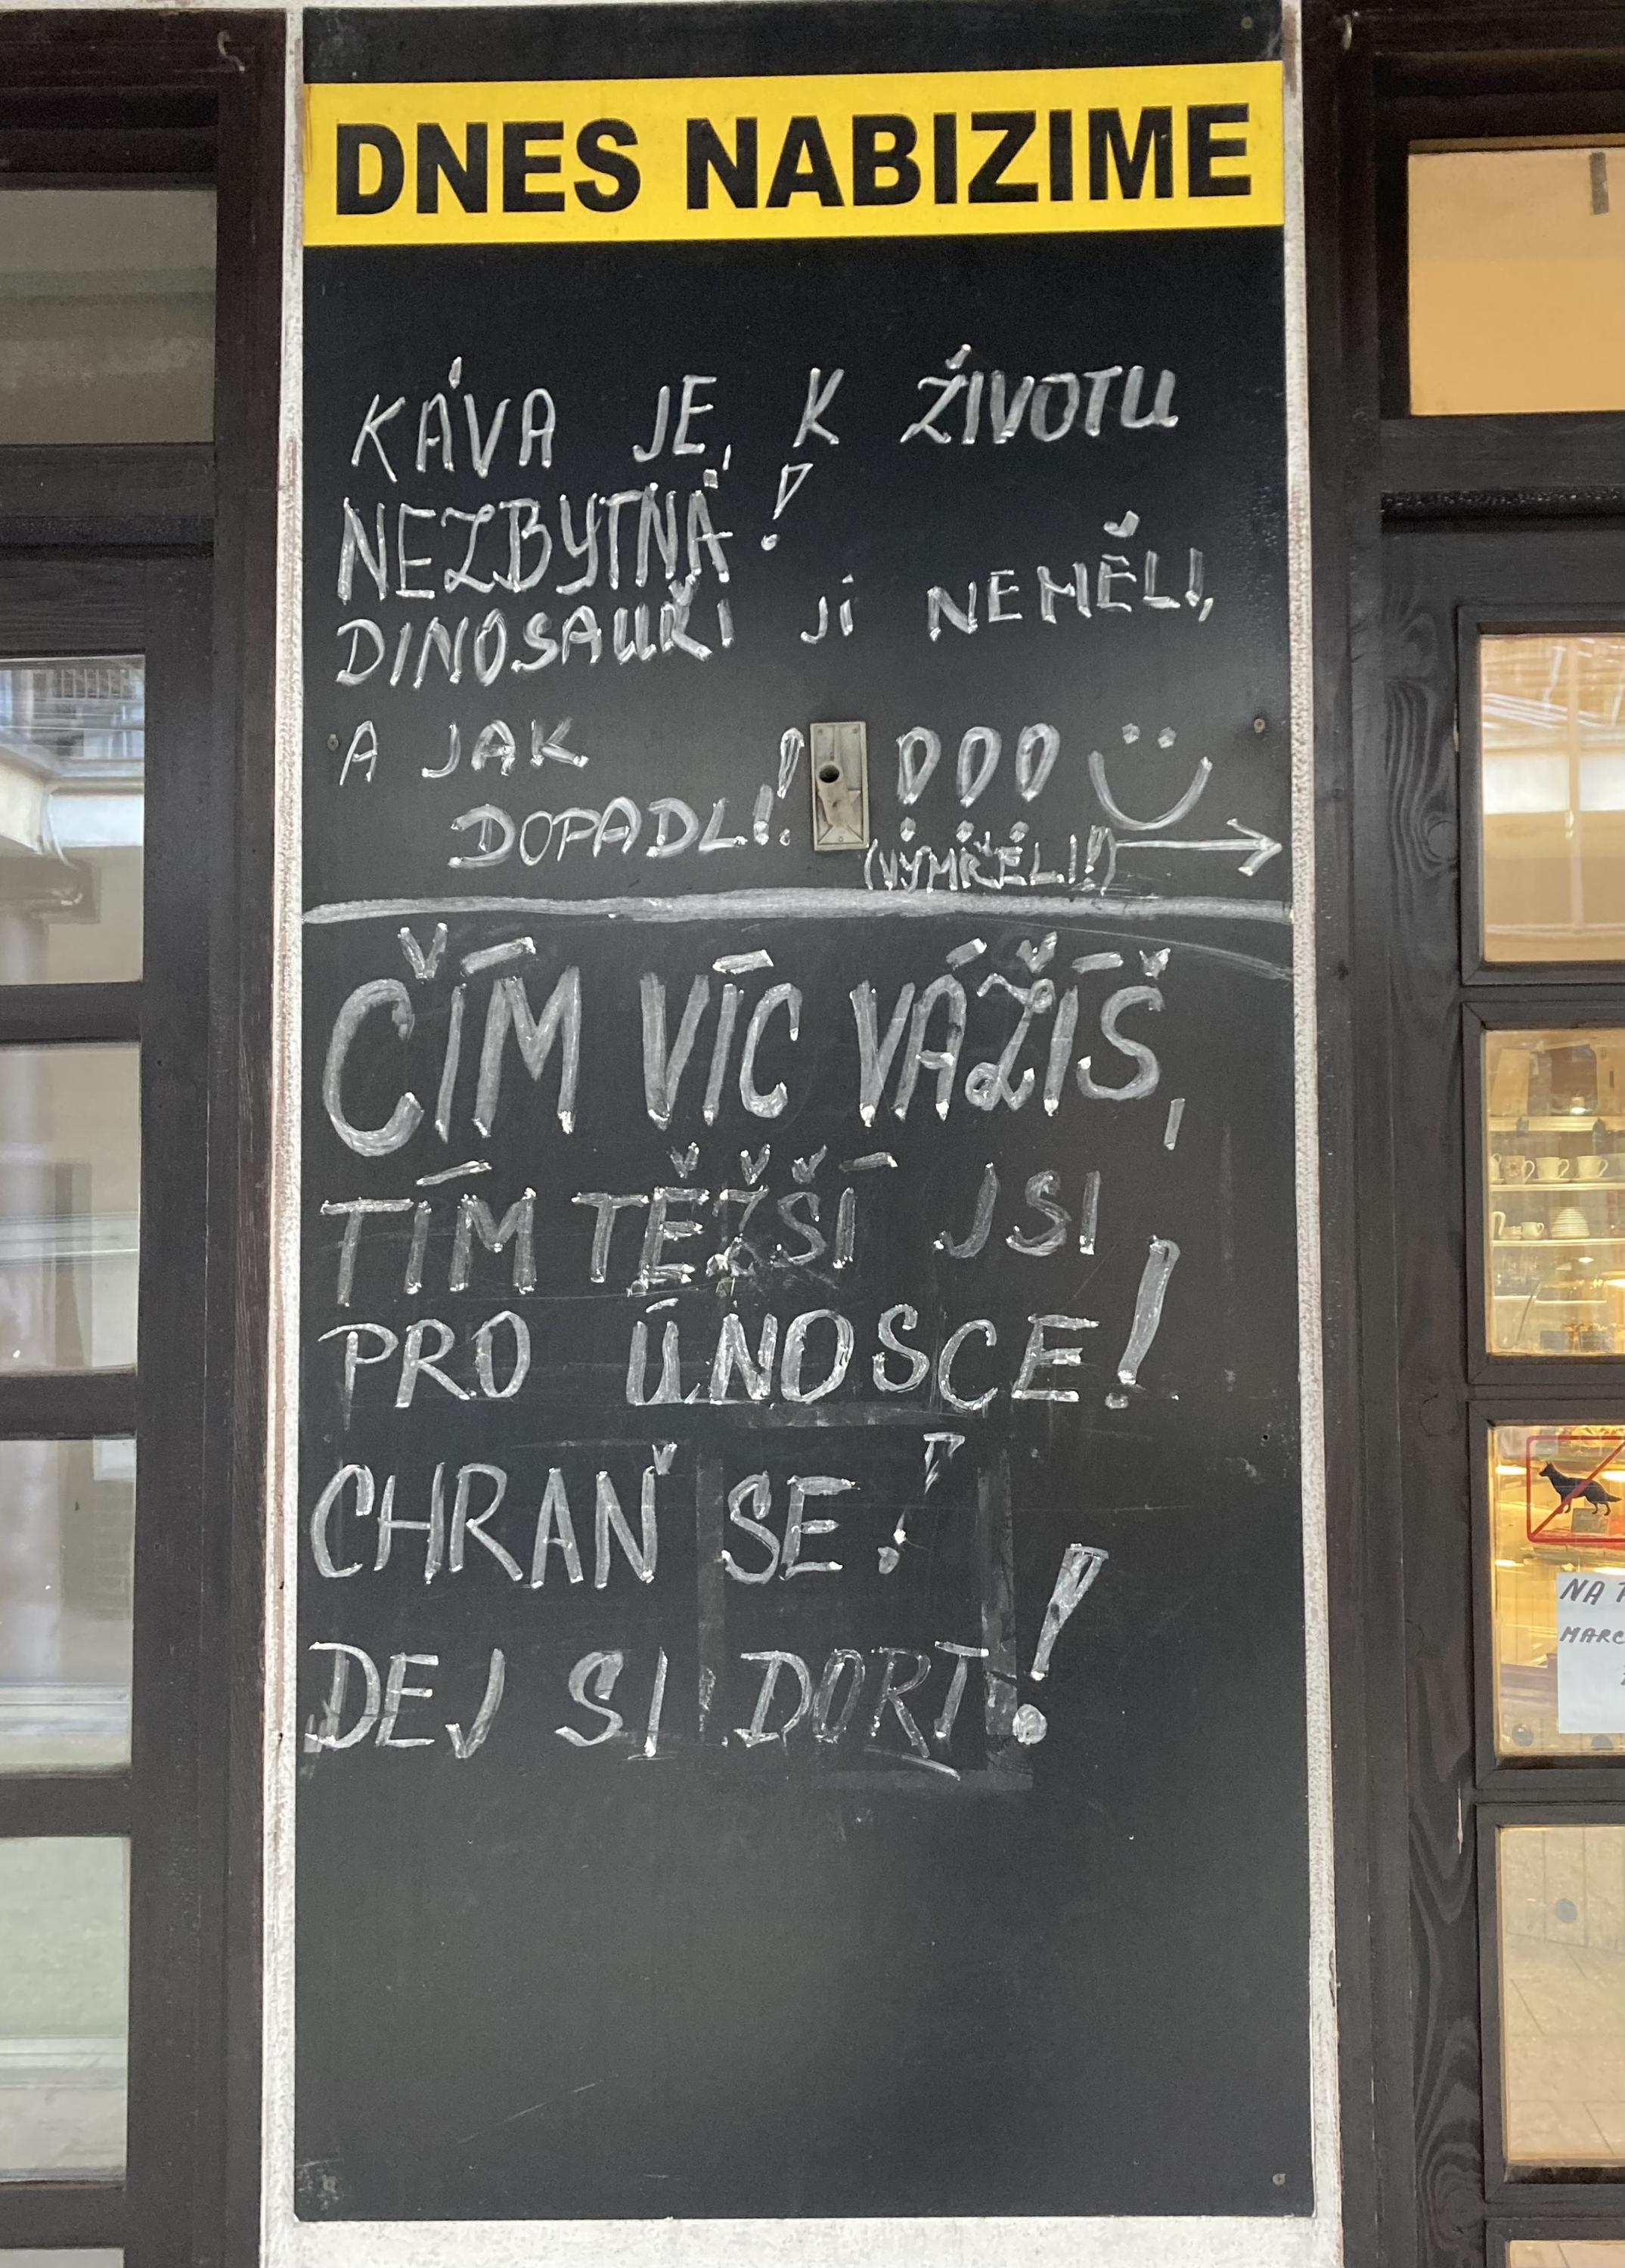 DNES NABIZIME
KÁVA JE K ŽIVOTU
NEZBYTNÁ!
DINOSAUŘI JI NEMĚLI,
A JAK
DOPADLI!! !!! :)
(VYMŘELI!!) →
ČÍM VÍC VÁŽÍŠ,
TÍM TĚŽŠÍ JSI
PRO ÚNOSCE!
CHRAŇ SE!
DEJ SI DORT!
NA
MARC